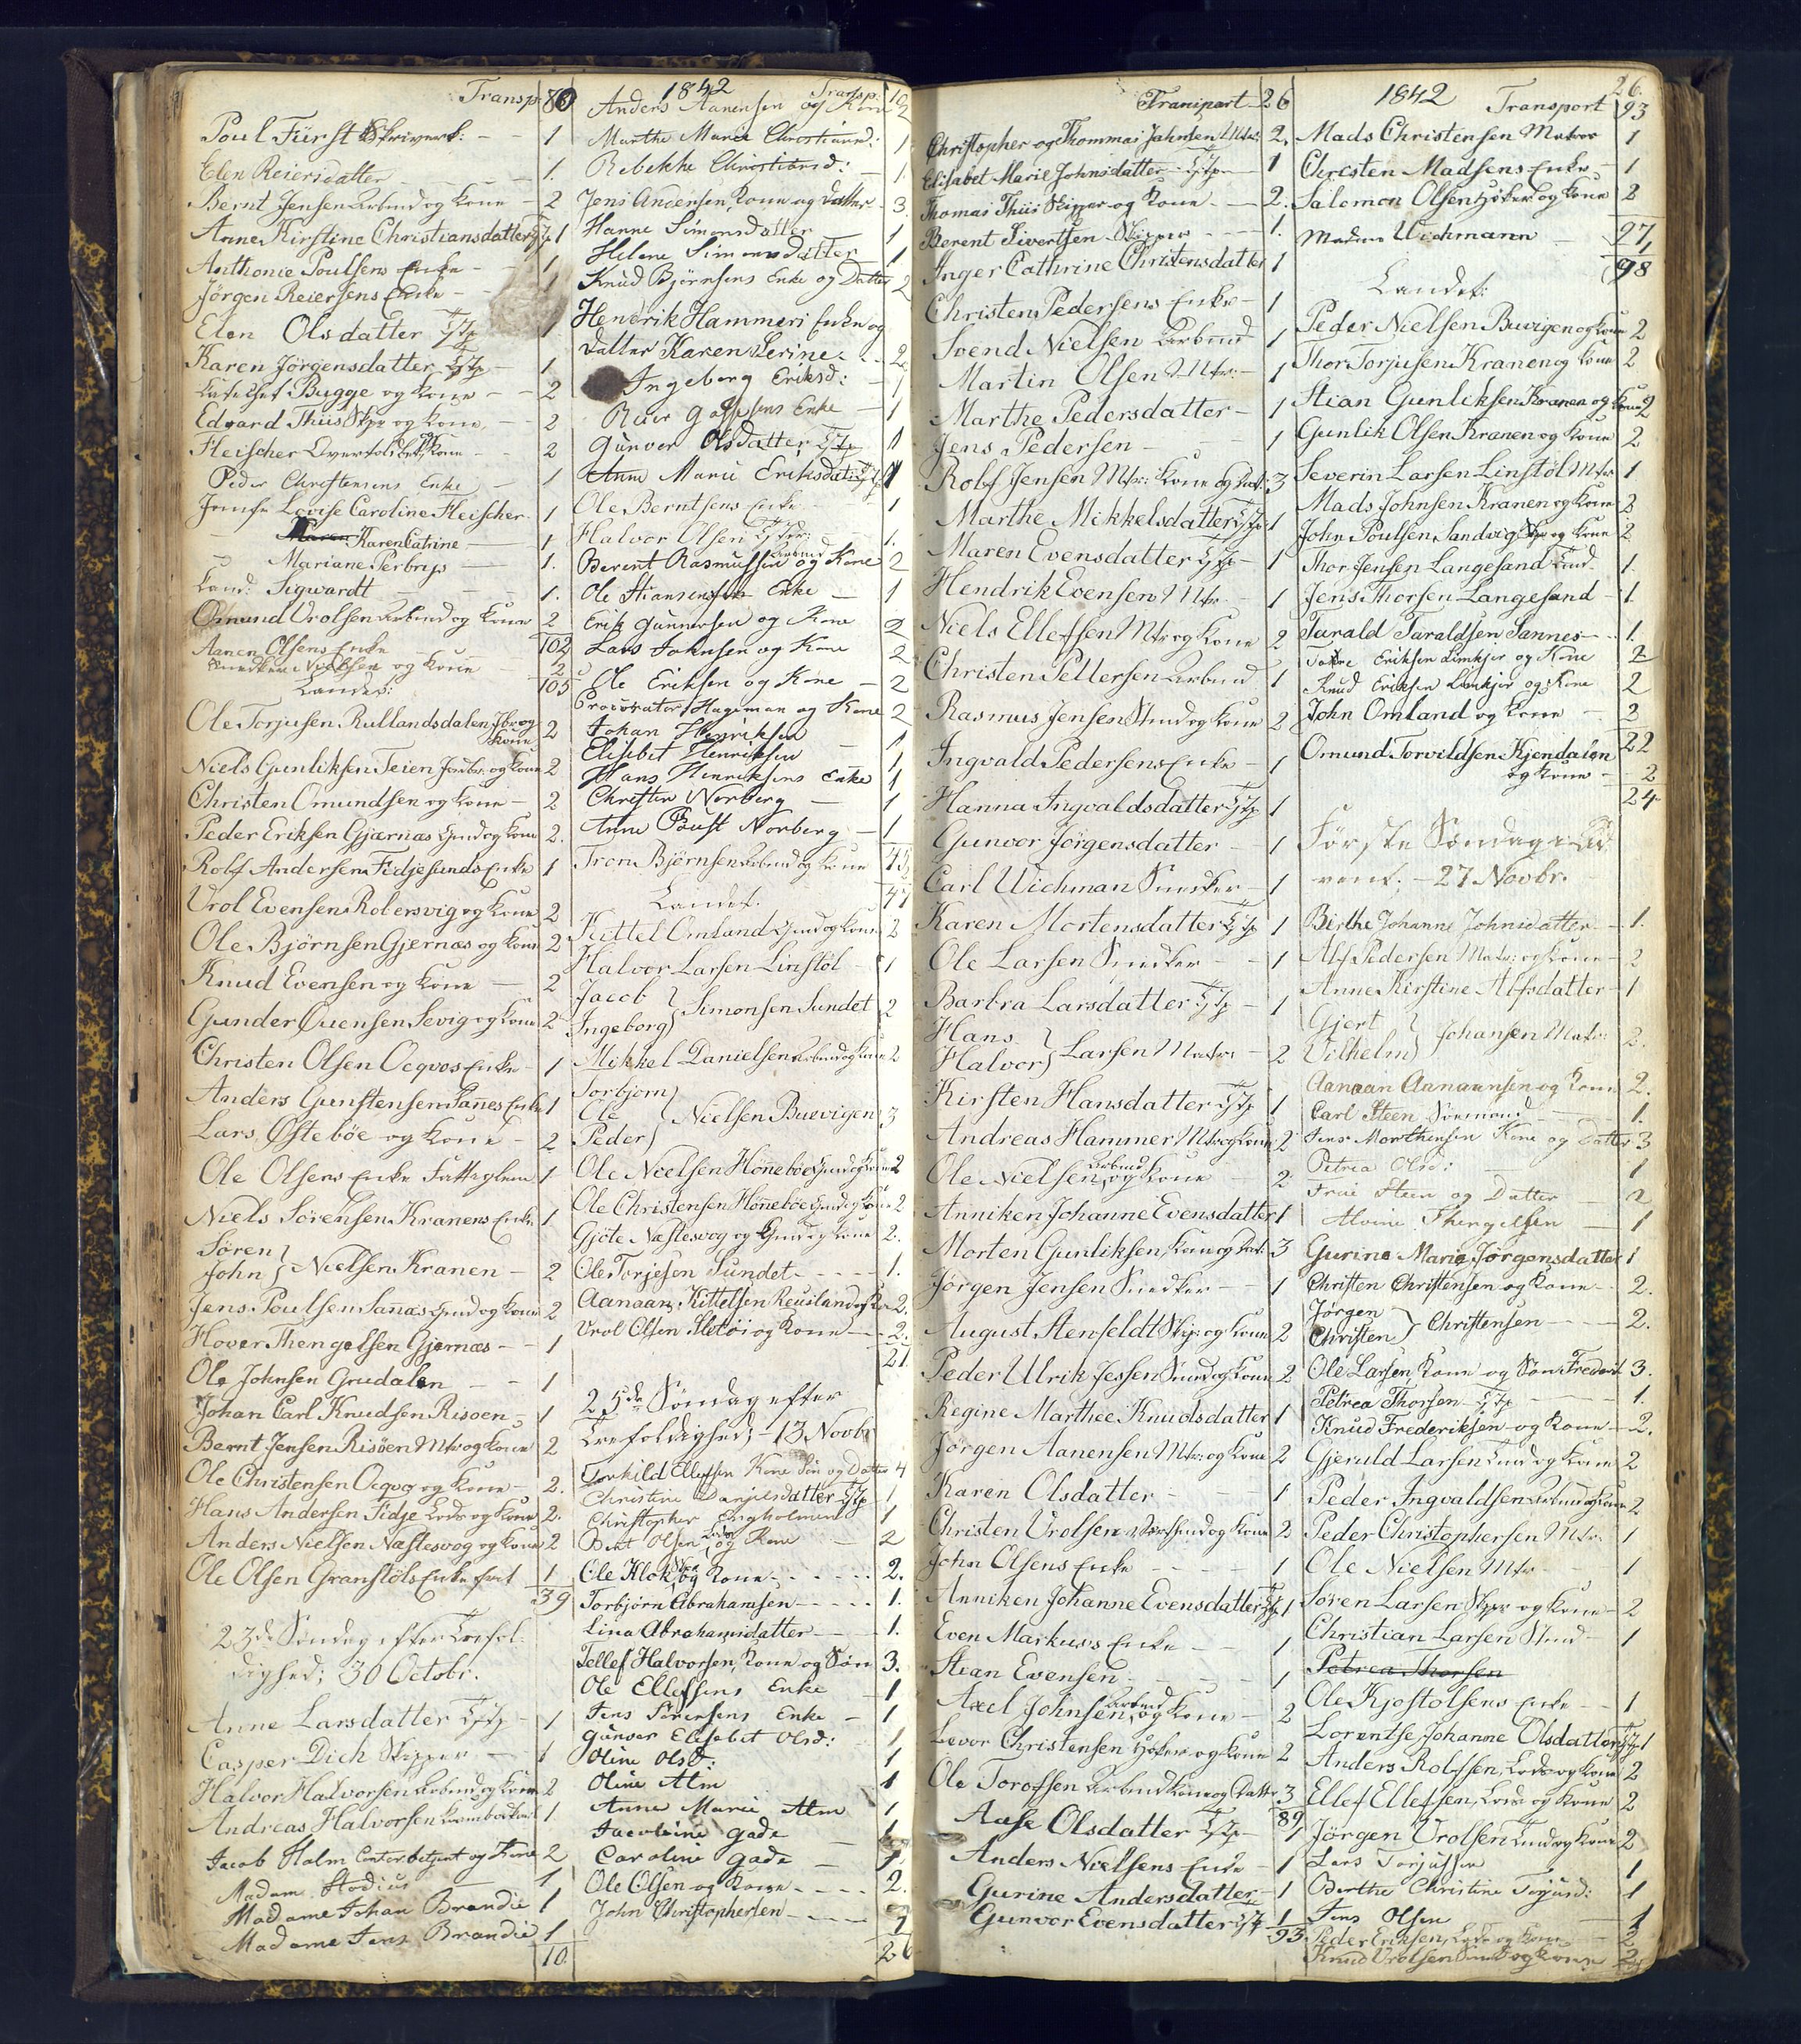 Transp. 80
Poul Fürst Skriverk: - 1
Elen Reiersdatter - 1.
Bernt Jensen Arbmd og Kone - 2
Anne Kirstine Christiansdatter Tjtp 1
Anthonie Poulsens Enke - 1
Jörgen Reiersens Enke - 1
Elen Olsdatter Tjtp 1
Karen Jörgensdatter Tjtp - 1
Bugge og Kone - 2
Edvard Thiis Skpr og Kone - 2
Fleischer Overtoldbetj Kone - 2
Peder Christensens Enke - 1
Jomfr Lovise Caroline Fleischer 1
- Karen Catrine - 1
- Mariane Perbrys - 1.
Cand: Sigwardt - 1.
Omund Vrolsen Arbmd og Kone 2
102
Aanen Olsens Enke 1
Snedker Nielsen og Kone 2
105
Landet:
Ole Torjusen Rullandsdalen Jbr og Kone 2
Niels Gunliksen Teien Jordbr: og Kone 2
Christen Omundsen og Kone - 2
Peder Eriksen Gjærnæs Gmd og Kone 2.
Rolf Andersens Fidjesunds Enke 1
Vrol Evensen Robersvig og Kone 2
Ole Björnsen Gjernæs og Kone 2
Knud Evensen og Kone - 2
Gunder Ouensen Sevig og Kone 2
Christen Olsen Ocqvos Enke - 1
Anders Gunstensens Sannes Enke 1
Lars Østebøe og Kone - 2
Ole Olsens Enke Fattiglem 1
Niels Sörensen Kranens Enke 1
Søren
John } Nielsen Kranen - 2
Jens Poulsen Sanæs Gmd og Kone 2
Hover Thengelsen Gjernæs - 1
Ole Johnsen Grudalen - 1
Johan Carl Knudsen Risøen 1
Bernt Jensen Risøen Mtr og Kone 2
Ole Christensen Ocqvog og Kone - 2.
Hans Andersen Fidje Lods og Kone 2.
Anders Nielsen Næstesvog og Kone 2
Ole Olsen Granstøls Enke fat 1
39
23de Søndag efter Trefol-
dighed; 30 Octobr.
Anne Larsdatter Tjtp - 1
Casper Dich Skipper - 1
Halvor Halvorsen Arbmd og Kone 2
Andreas Halvorsen 1
Jacob Holm Contorbetjent og Kone 2
Madam Stodius 1
Madame Johan Brandie 1
Madame Jens Brandie 1
10.
1842
Transp: 10
Anders Aanensen og Kone 2
Marthe Marie Christiansd: 1
Rebekke Christiansd: - 1
Jens Andersen, Kone og Datter - 3.
Hanne Simonsdatter 1
Helene Simonsdatter 1
Knud Björnsens Enke og Datter 2
Hendrik Hammers Enke og
Datter Karen Serine - 2
Ingeborg Eriksd: - 1
Enke - 1
Gunvor Olsdatter, Tjtp 1
Anne Marie Eriksdatter Tjtp 1
Ole Berntsens Enke 1
Halvor Olsen 1.
Berent Rasmussen Arbmd og Kone 2
Ole Stiansens Enke - 1
Erik Gunnersen og Kone 2
Lars Johnsen og Kone 2
Ole Eriksen og Kone - 2
Procurator Hageman og Kone 2
Johan Henriksen 1
Elisebet Henriksen 1
Hans Henriksens Enke 1
Christen Norberg - 1
Anne Bust Norberg - 1
Tron Björnsen Arbmd og Kone
47
Landet.
Kittel Omland Gmd og Kone 2
Halvor Larsen Linstöl - 1
Jacob
Ingeborg } Simonsen Sundet 2
Mikkel Danielsen Arbmd og Kone 2
Torbjørn
Ole
Peder } Nielsen Buevigen 3
Ole Neelsen Hönnebøe Gmd og Kone 2
Ole Christensen Hönnebøe Gmd og Kone 2
Gjöte Næstesvog og Kone 2.
Ole Torjesen Sundet - 1.
Aanaan Kittelsen Reusland og Kone 2.
Vrol Olsen Sletöi og Kone - 2.
21.
25de Søndag efter
Trefoldighed; - 13 Novbr
Torkild Ellefsen Kone Søn og Datter 4
Christine Danjelsdatter Tjtp 1
Christopher Engholmen 1
Bent Olsen, Lods og Kone - 2
Ole Klok, og Kone - 2.
Torbjørn Abrahamsen - 1.
Lina Abrahamsdatter - 1.
Tellef Halvorsen, Kone og Søn 3.
Ole Ellefsens Enke 1
Jens Sørensens Enke - 1
Gunvor Elisebet Olsd: - 1
Oline Olsd: 1
Oline Alm 1
Anne Marie Alm 1
Jacobine Gade - 1
Caroline Gade - 1
Ole Olsen og Kone - 2.
John Christophersen - 1
26
Transport 26
Christopher og Thommas Jahnsen Mtr: 2.
Elisabet Marie Johnsdatter - Tjtp - 1
Thomas Thiis Skipper og Kone - 2.
Berent Sivertsen Skipper - 1.
Inger Cathrine Christensdatter 1
Christen Pedersens Enke - 1
Svend Nielsen Arbmd 1
Martin Olsen Mtr: - 1
Marthe Pedersdatter - 1
Jens Pedersen - 1
Rolf Jensen Mtr: Kone og Dat: 3
Marthe Mikkelsdatter Tjtp 1
Maren Evensdatter Tjtp - 1
Hendrik Evensen Mtr - 1
Niels Ellefsen Mtr og Kone 2
Christen Pettersen Arbmd 1
Rasmus Jensen Smd og Kone 2
Ingvald Pedersens Enke - 1
Hanna Ingvaldsdatter Tjtp 1
Gunvor Jörgensdatter - 1
Carl Wichman Snedker - 1
Karen Mortensdatter Tjtp 1
Ole Larsen Snedker - 1
Barbra Larsdatter Tjtp - 1
Hans
Halvor } Larsen Matr: - 2
Kirsten Hansdatter Tjtp 1
Andreas Hammer Mtr og Kone 2
Ole Nielsen, Arbmd og Kone 2
Anniken Johanne Evensdatter 1
Morten Gunliksen, Kone og Dat: 3
Jørgen Jensen Snedker - 1
August Stenfeldt Skp: og Kone 2
Peder Ulrik Jessen Smd og Kone 2
Regine Marthee Knudsdatter 1
Jørgen Aanensen Mtr: og Kone 2
Karen Olsdatter - 1
Christen Vrolsen og Kone 2
John Olsens Enke - 1
Anniken Johanne Evensdatter Tjtp 1
Even Markus's Enke - 1
Stian Evensen - 1
Axel Johnsen, Arbmd og Kone - 2
Levor Christensen Høker og Kone 2
Ole Torossen Arbmd Kone og Datter 3
89
Aase Olsdatter Tjtp - 1
Anders Nielsens Enke - 1
Gurine Andersdatter - 1
Gunvor Evensdatter Tjt 1
93
1842
26.
Transport 93
Mads Christensen Matros 1
Christen Madsens Enke - 1
Salomon Olsen Høker og Kone 2
97
Madam Wichmann 1
98
Landet:
Peder Nielsen Buvigen og Kone 2
Thor Torjusen Kranen og Kone 2
Stian Gunliksen Kranen og Kone 2
Gunlik Olsen Kranen og Kone 2
Severin Larsen Linstöl Mtr 1
Mads Johnsen Kranen og Kone 2
John Poulsen Sandvig Skp og Kone 2
Thor Jensen Langesand Gmd. 1.
Jens Thorsen Langesand - 1.
Tarald Taraldsen Sannes - 1.
Eriksen Limkjer og Kone 2
Knud Eriksen Limkjer og Kone 2
John Omland og Kone - 2
22
Omund Torvildsen Kjendalen
og Kone - 2
24
Første Søndag i Ad-
vent; - 27 Novbr.
Birthe Johanne Johnsdatter - 1.
Alf Pedersen Matr: og Kone - 2
Anne Kirstine Alfsdatter - 1
Gjert
Vilhelm } Johansen Matr: 2.
Aanaan Aanaansen og Kone 2.
Carl Steen Sømand - 1.
Jens Morthensen Kone og Datter 3
Petrea Olsd: 1
Frue Steen og Datter - 2
Alvine Thengelsen - 1
Gurine Marie Jørgensdatter 1
Christen Christensen og Kone - 2.
Jørgen
Christen } Christensen - 2.
Ole Larsen, Kone og Søn Frederik 3.
Petrea Thorsen Tjtp - 1.
Knud Frederiksen og Kone - 2.
Gjeruld Larsen Lmd og Kone 2
Peder Ingvaldsen Arbmd og Kone 2
Peder Christophersen Mtr - 1
Ole Nielsen Mtr - 1
Søren Larsen Skpr og Kone - 2
Christian Larsen Stmd - 1
Petrea Thorsen
Ole Kjostolsens Enke - 1
Lorentse Johanne Olsdatter Tjtp 1
Anders Rolfsen, Lods og Kone 2
Ellef Ellefsen, Lods og Kone 2
Jørgen Vrolsen Lmd og Kone 2
Lars Torjussen 1
Berthe Christine Torjusd: 1
Jens Olsen - 1
Peder Eriksen, Lods og Kone - 2
Knud Vrolsen Smd og Kone 2